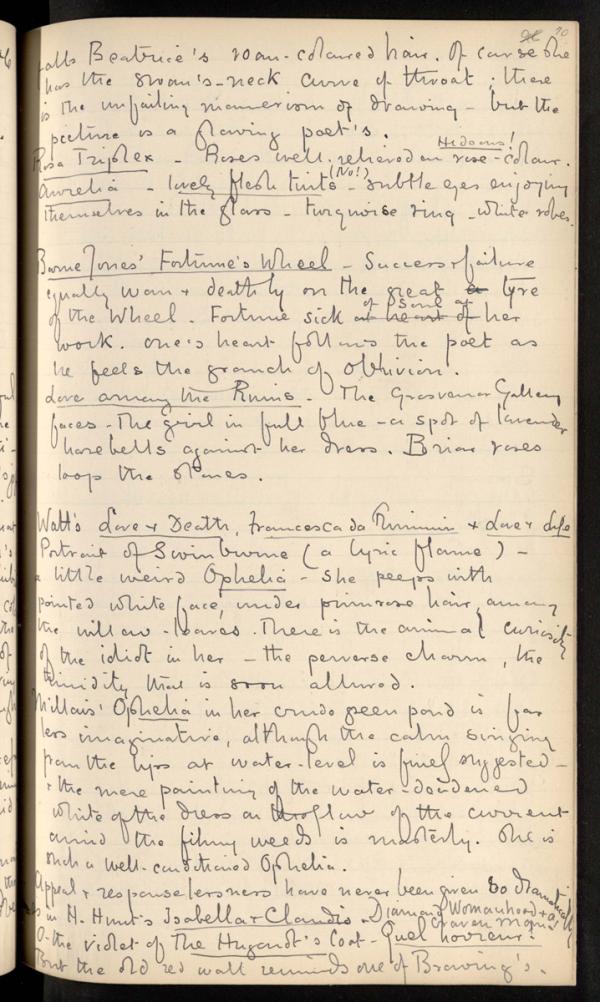 70
falls Beatrice's roan-coloured hair. Of course she
has the swan's-neck curve of throat; there
is the unfailing mannerism of drawing - but the
picture is a flowing poet's.
Hideous!
Rosa Triplex - Roses well relieved on rose-colour.
(No!)
Aurelia - lovely flesh tints - subtle eyes enjoying
themselves in the glass - turquoise ring - white robes.
Burne Jones' Fortune's Wheel - Success & failure
equally wan & deathly on the great tyre
of the Wheel. Fortune sick at heart of her
of soul at
work. One's heart follows the poet as
he feels the granch of oblivion.
Love among the Ruins. The Grosvenor Gallery
faces - The girl in full blue - a spot of lavender
harebells against her dress. Briar roses
loop the stones.
Watt's Love & Death, Francesca da Rimini & Love & Life
Portrait of Swinburne (a lyric flame) -
a little weird Ophelia - She peeps with
pointed white face, under primrose hair, among
the willow-leaves. There is the animal curiosity
of the idiot in her - the perverse charm, the
timidity that is soon allured.
Millais' Ophelia in her crude green pond is far
less imaginative, although the calm singing
from the lips at water-level is finely suggested -
& the mere painting of the water-deadened
white of the dress on the flow of the current
amid the filmy weeds is masterly. She is
such a well-conditioned Ophelia.
Appeal & responselessness have never been given so dramatically
as in H. Hunt's Isabella & Claudio - Diamond Womanhood & a
Craven Man!
O the violet of The Hugonot's Coat - Quel horreur!
But the old red wall reminds one of Browning's.